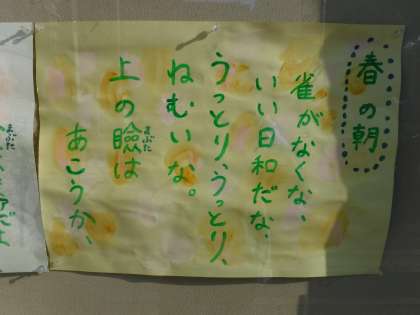 春の朝
雀がなくな、
いい日和だな、
うっとり、うっとり、
ねむいな。
上の瞼は
まぶた
あこうか、
まぶた